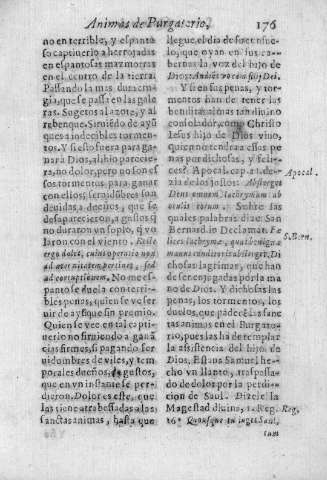 Animas de Purgatorio, 176
no en terrible, y espanto
so captiuerio aherrojadas
en espantosas mazmorras
en el centro de la tierra!
Passando la mas dura mu-
gia, que se passa en las gale
ras. Sugetos al azote, y al
rebenque. Siruiẽdo de ayf
ques a indecibles tormen-
tos. Y si esto fuera para ga-
nar à Dios, aliuio parecie-
ra, no dolor, pero no son es
sos tormentos para ganar
con ellos, señorearse son
deuidas a deciños, que se
desaparecieron, a gustos q̃
no duraron vn soplo, q̃ vo
laron con el viento. Facile
ergo dolet, cuius operatio non
ad æternitatem pertinet, sed
ad corruptionem. No me es-
panto se duela con terri-
bles penas, quien se ve ser
uir de ayfque sin premio.
Quien se vee en tal capti-
uerio no siruiendo a ganã
cias firmes, si pagando ser
uidumbres de viles, y tem
porales dueños, de gustos,
que en vn instante se per-
dieron. Dolor es este, que
las tiene atrabessadas a las
sanctas animas, hasta que
llegue el dia de su consue-
lo, que oyan en sus ca-
bernas la voz del hijo de
Dios: Audient vocem filij Dei.
Y si en sus penas, y tor-
mentos han de tener las
benditas almas tan diuino
consolador, como Christo
Iesus hijo de Dios viuo,
quien no tendra a essas pe
nas por dichosas, y feli-
ces? Apocal. cap. 21. de-
zia de los justos: Absterget
Deus omnem lachrymam ab
oculis eorum: Sobre las
quales palabras dize San
Bernard. in Declamat. Fœ
lices lachrymæ, quas benignæ
manus conditoris abstergẽt. Di
chosas lagrimas, que han
de ser enjugadas por la ma
no de Dios. Y dichosas las
penas, los tormentos, los
duelos, que padecẽ las san
tas animas en el Purgato-
rio, pues las ha de templar
la assistencia del hijo de
Dios. Estaua Samuel he-
cho vn llanto, traspassa-
do de dolor por la perdi-
cion de Saul. Dizele la
Magestad diuina, 1. Reg.
16. Quousque tu luges Saul,
cum
Apocal.
S. Bern.
Reg.